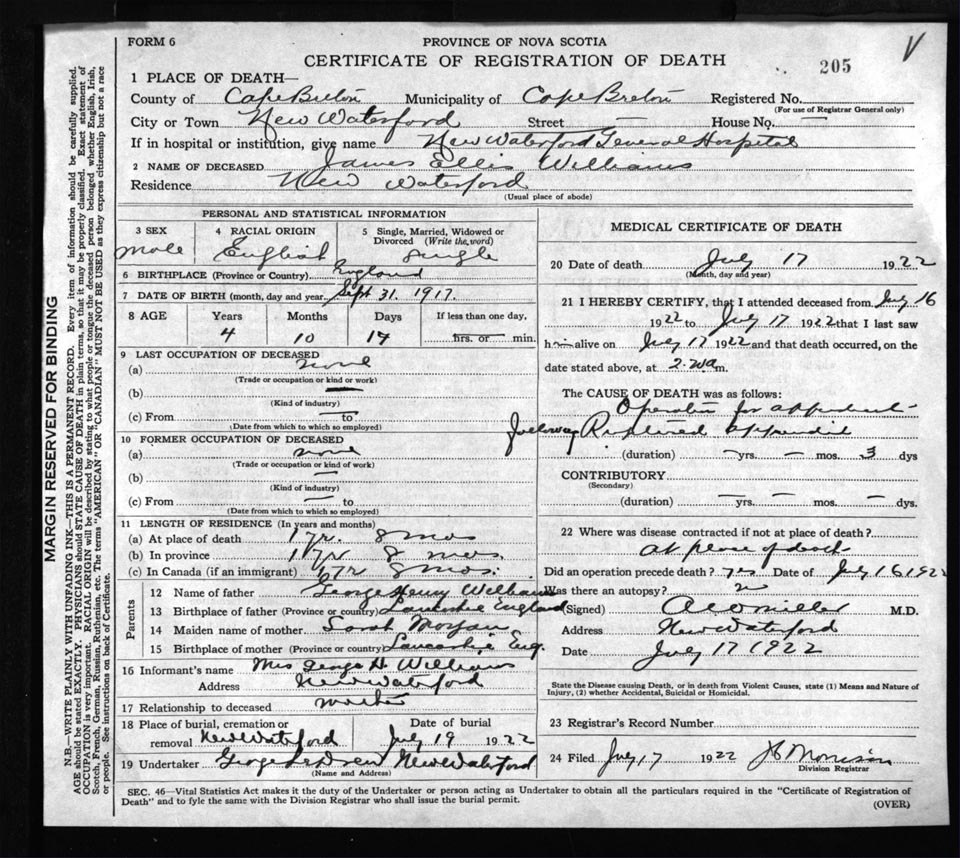 FORM 6
PROVINCE OF NOVA SCOTIA
CERTIFICATE OF REGISTRATION OF DEATH
205
1 PLACE OF DEATH—
County of Cape Breton Municipality of Cape Breton Registered No.
(For use of Registrar General only)
City or Town New Waterford Street — House No. —
If in hospital or institution, give name New Waterford General Hospital
2 NAME OF DECEASED James Ellis Williams
Residence New Waterford
(Usual place of abode)
PERSONAL AND STATISTICAL INFORMATION
3 SEX 4 RACIAL ORIGIN 5 Single, Married, Widowed or Divorced (Write the word)
male English single
6 BIRTHPLACE (Province or Country) England
7 DATE OF BIRTH (month, day and year) Sept 31. 1917.
8 AGE Years Months Days If less than one day,
4 10 17 hrs. or — min.
9 LAST OCCUPATION OF DECEASED
(a) none
(Trade or occupation or kind or work)
(b) —
(Kind of industry)
(c) From — to
(Date from which to which so employed)
10 FORMER OCCUPATION OF DECEASED
(a) none
(Trade or occupation or kind of work)
(b) —
(Kind of industry)
(c) From — to
(Date from which to which so employed)
11 LENGTH OF RESIDENCE (In years and months)
(a) At place of death 1 yr. 8 mos
(b) In province 1 yr 8 mos.
(c) In Canada (if an immigrant) 1 yr 8 mos.
Parents
12 Name of father George Henry Williams
13 Birthplace of father (Province or country) Lancashire England
14 Maiden name of mother Sarah Morgan
15 Birthplace of mother (Province or country) Lancashire Eng.
16 Informant's name Mrs George H. Williams
Address New Waterford
17 Relationship to deceased mother
18 Place of burial, cremation or removal New Waterford Date of burial July 19 1922
19 Undertaker George New Waterford
(Name and Address)
MEDICAL CERTIFICATE OF DEATH
20 Date of death July 17 1922
(Month, day and year)
21 I HEREBY CERTIFY, that I attended deceased from July 16
1922 to July 17 1922 that I last saw
him alive on July 17 1922 and that death occurred, on the
date stated above, at 2 m.
The CAUSE OF DEATH was as follows:
Operation for
Ruptured
(duration) — yrs. — mos. 3 dys
CONTRIBUTORY
(Secondary)
(duration) — yrs. — mos. — dys.
22 Where was disease contracted if not at place of death?
at place of death
Did an operation precede death? yes Date of July 16, 1922
Was there an autopsy?
(Signed) M.D.
Address New Waterford
Date July 17 1922
State the Disease causing Death, or in death from Violent Causes, state (1) Means and Nature of Injury, (2) whether Accidental, Suicidal or Homicidal.
23 Registrar's Record Number
24 Filed July 17 1922 Morrison
Division Registrar
SEC. 46—Vital Statistics Act makes it the duty of the Undertaker or person acting as Undertaker to obtain all the particulars required in the "Certificate of Registration of
Death" and to fyle the same with the Division Registrar who shall issue the burial permit.
(OVER)
MARGIN RESERVED FOR BINDING
N.B.—WRITE PLAINLY WITH UNFADING INK—THIS IS A PERMANENT RECORD. Every item of information should be carefully supplied.
AGE should be stated EXACTLY. PHYSICIANS should STATE CAUSE OF DEATH in plain terms, so that it may be properly classified. Exact statement of
OCCUPATION is very important. RACIAL ORIGIN will be described by stating to what people or tongue the deceased person belonged whether English, Irish,
Scotch, French, German, Russian, Ruthenian, etc. The terms "AMERICAN" OR "CANADIAN" MUST NOT BE USED as they express citizenship but not a race
or people. See instructions on back of Certificate.